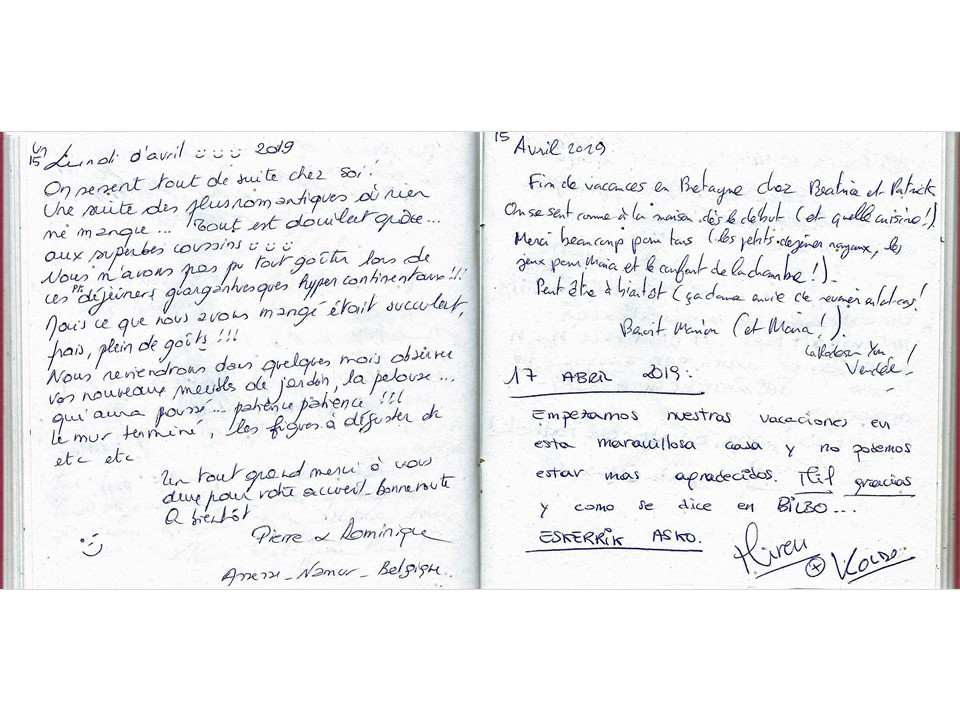 Un
15 Lundi d'avril 2019
On se sent tout de suite chez soi!
Une suite des plus romantiques où rien
ne manque... Tout est douillet grâce...
aux superbes coussins
Nous n'avons pas pu tout goûter lors de
ces Pts déjeuners gargantuesques hyper continentaux!!!
Mais ce que nous avons mangé était succulent,
frais, plein de goûts!!!
Nous reviendrons dans quelques mois observer
vos nouveaux meubles de jardin, la pelouse...
qui aura poussé... patience patience!!!
le mur terminé, les figues à déguster etc
etc etc
Un tout grand merci à vous
deux pour votre accueil. Bonne route
A bientôt
Pierre & Dominique
Assesse - Namur - Belgique.
15 Avril 2019
Fin de vacances en Bretagne chez Béatrice et Patrick
On se sent comme à la maison dès le début (et quelle cuisine!)
Merci beaucoup pour tous (les petits-dejeuner royaux, les
jeux pour Maïa et le confort de la chambre!).
Peut être à bientôt (ça donne envie de revenir en tot cas!
Benoit Manon (et Maïa!)
Vendée!
17 ABRIL 2019.
Empezamos nuestras vacaciones en
esta maravillosa casa y no podemos
estar mas agradecidos. Mil gracias
y como se dice en BILBO...
ESKERRIK ASKO.
Miren
Koldo